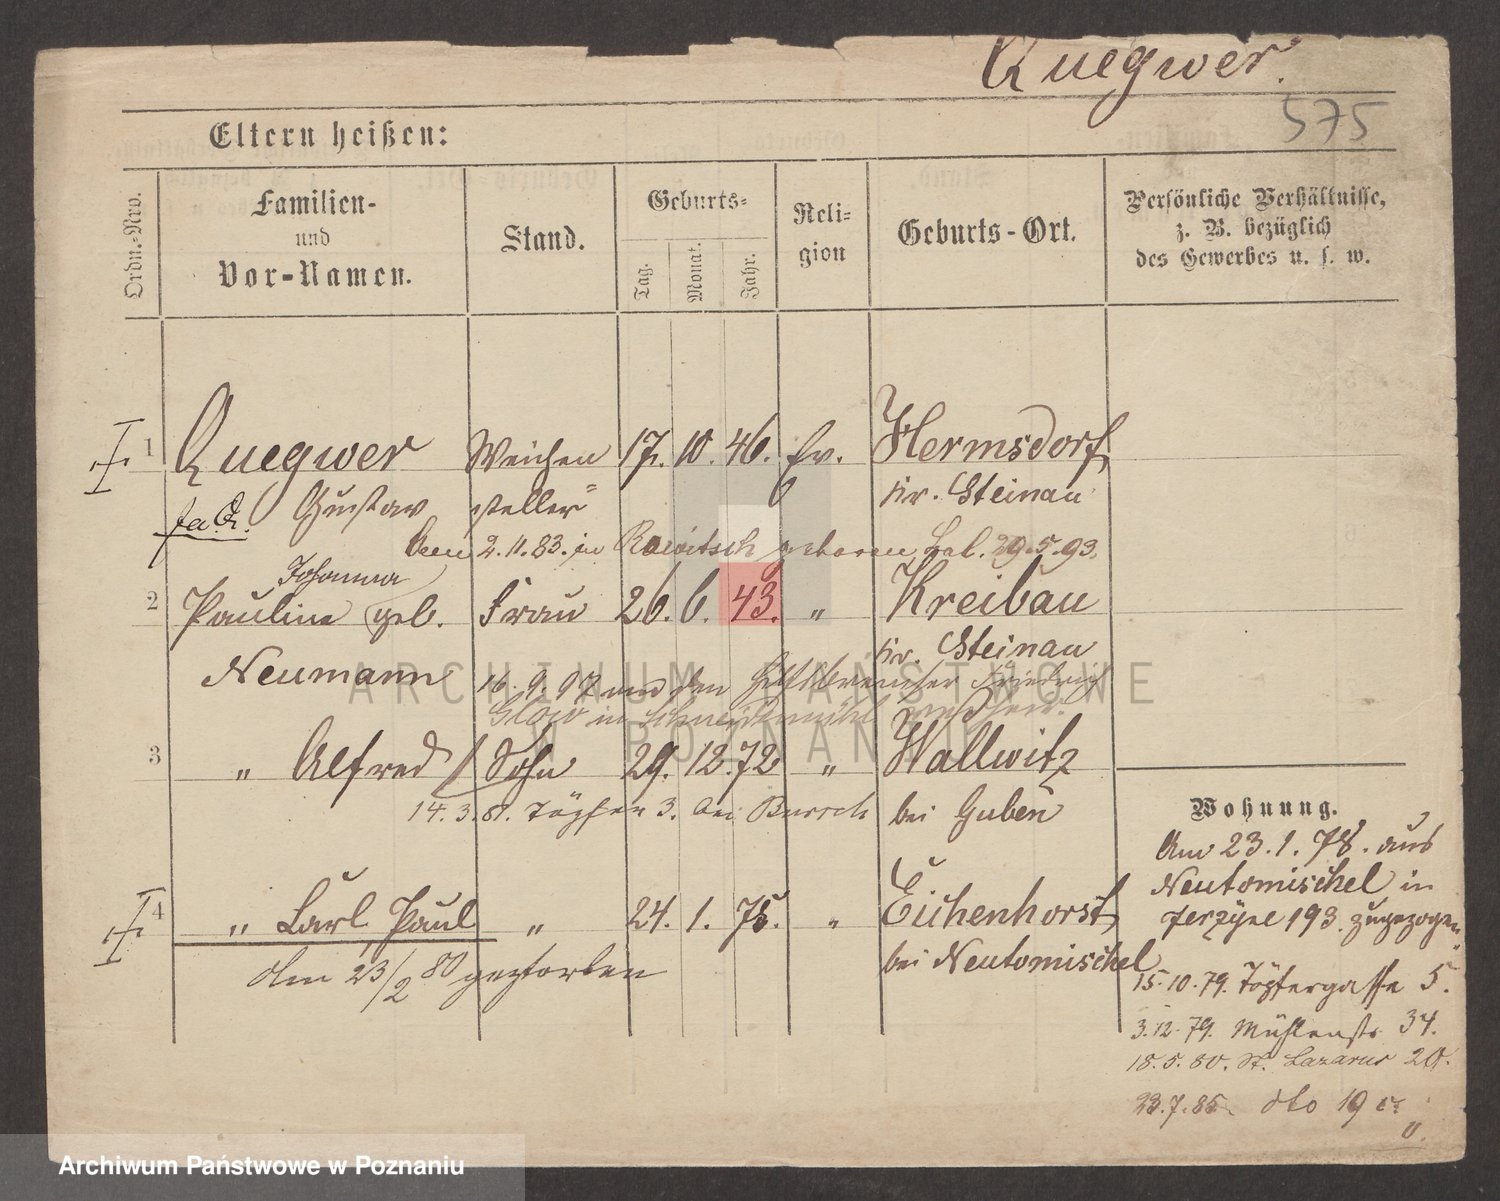 Quegwer.
575
Eltern heißen:
Ordn.-Nro.
Familien-
und
Vor-Namen.
Stand.
Geburts-
Tag.
Monat.
Jahr.
Reli-
gion
Geburts-Ort.
Persönliche Verhältnisse,
z. B. bezüglich
des Gewerbes u. s. w.
1 Quegwer Weichen 17. 10. 46. Ev. Hermsdorf,
Gustav steller Kr. Steinau
2.11.83. in Rawitsch geboren 29.5.93.
Johanna
2 Pauline geb. Frau 26. 6. 43. " Kreibau
Neumann Kr. Steinau
16.9.97 Friedrich
in Schneidemühl
3 " Alfred Sohn 29. 12. 72 " Wallwitz
14.3.81. 3. bei bei Guben
4 " Carl Paul " 24. 1. 75. " Eichenhorst,
Am 23/2 80 gestorben bei Neutomischel
Wohnung.
Am 23.1.78. aus
Neutomischel in
Jerzyce 193. zugezogen.
15.10.79. Töpfergasse 5.
3.12.79. Mühlenstr. 34.
18.5.80. St. Lazarus 20.
23.7.85. dto 19
ARCHIWUM PAŃSTWOWE
W POZNANIU
Archiwum Państwowe w Poznaniu